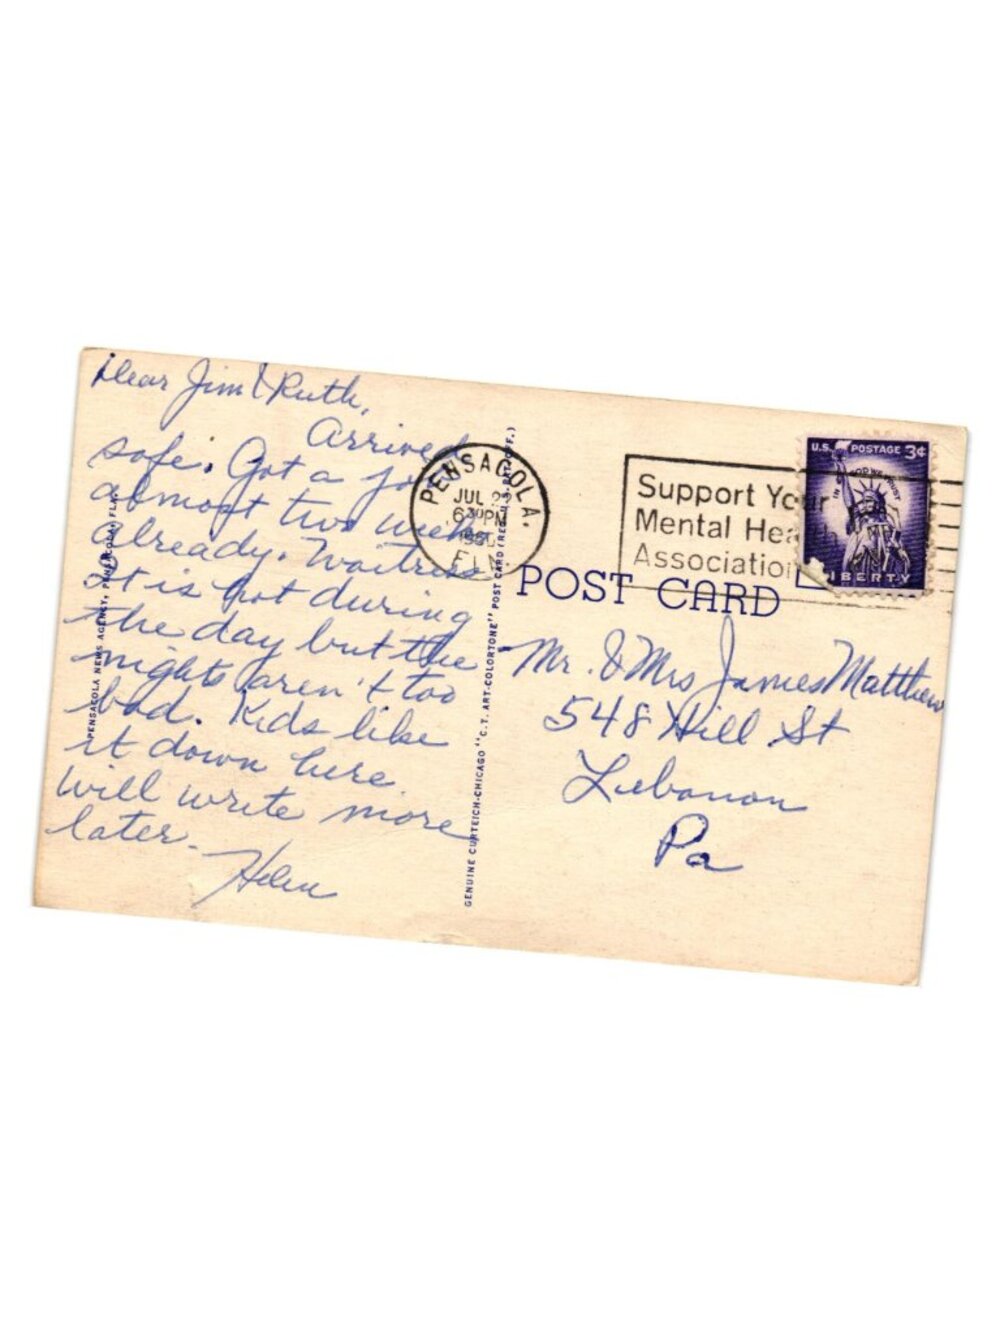 Dear Jim & Ruth,
Arrived
safe. Got a job
almost two weeks
already. Waitress
It is hot during
the day but the
nights aren't too
bad. Kids like
it down here.
Will write more
later.
Helen
PENSACOLA NEWS AGENCY, PENSACOLA, FLA.
GENUINE CURTEICH-CHICAGO "C.T. ART-COLORTONE" POST CARD (REG. U.S. PAT. OFF.)
PENSACOLA,
JUL
6 30 PM
FLA.
Support Your
Mental Hea
Association
U.S. POSTAGE 3¢
IN GOD WE TRUST
LIBERTY
POST CARD
Mr. & Mrs James Matthew
548 Hill St
Lebanon
Pa